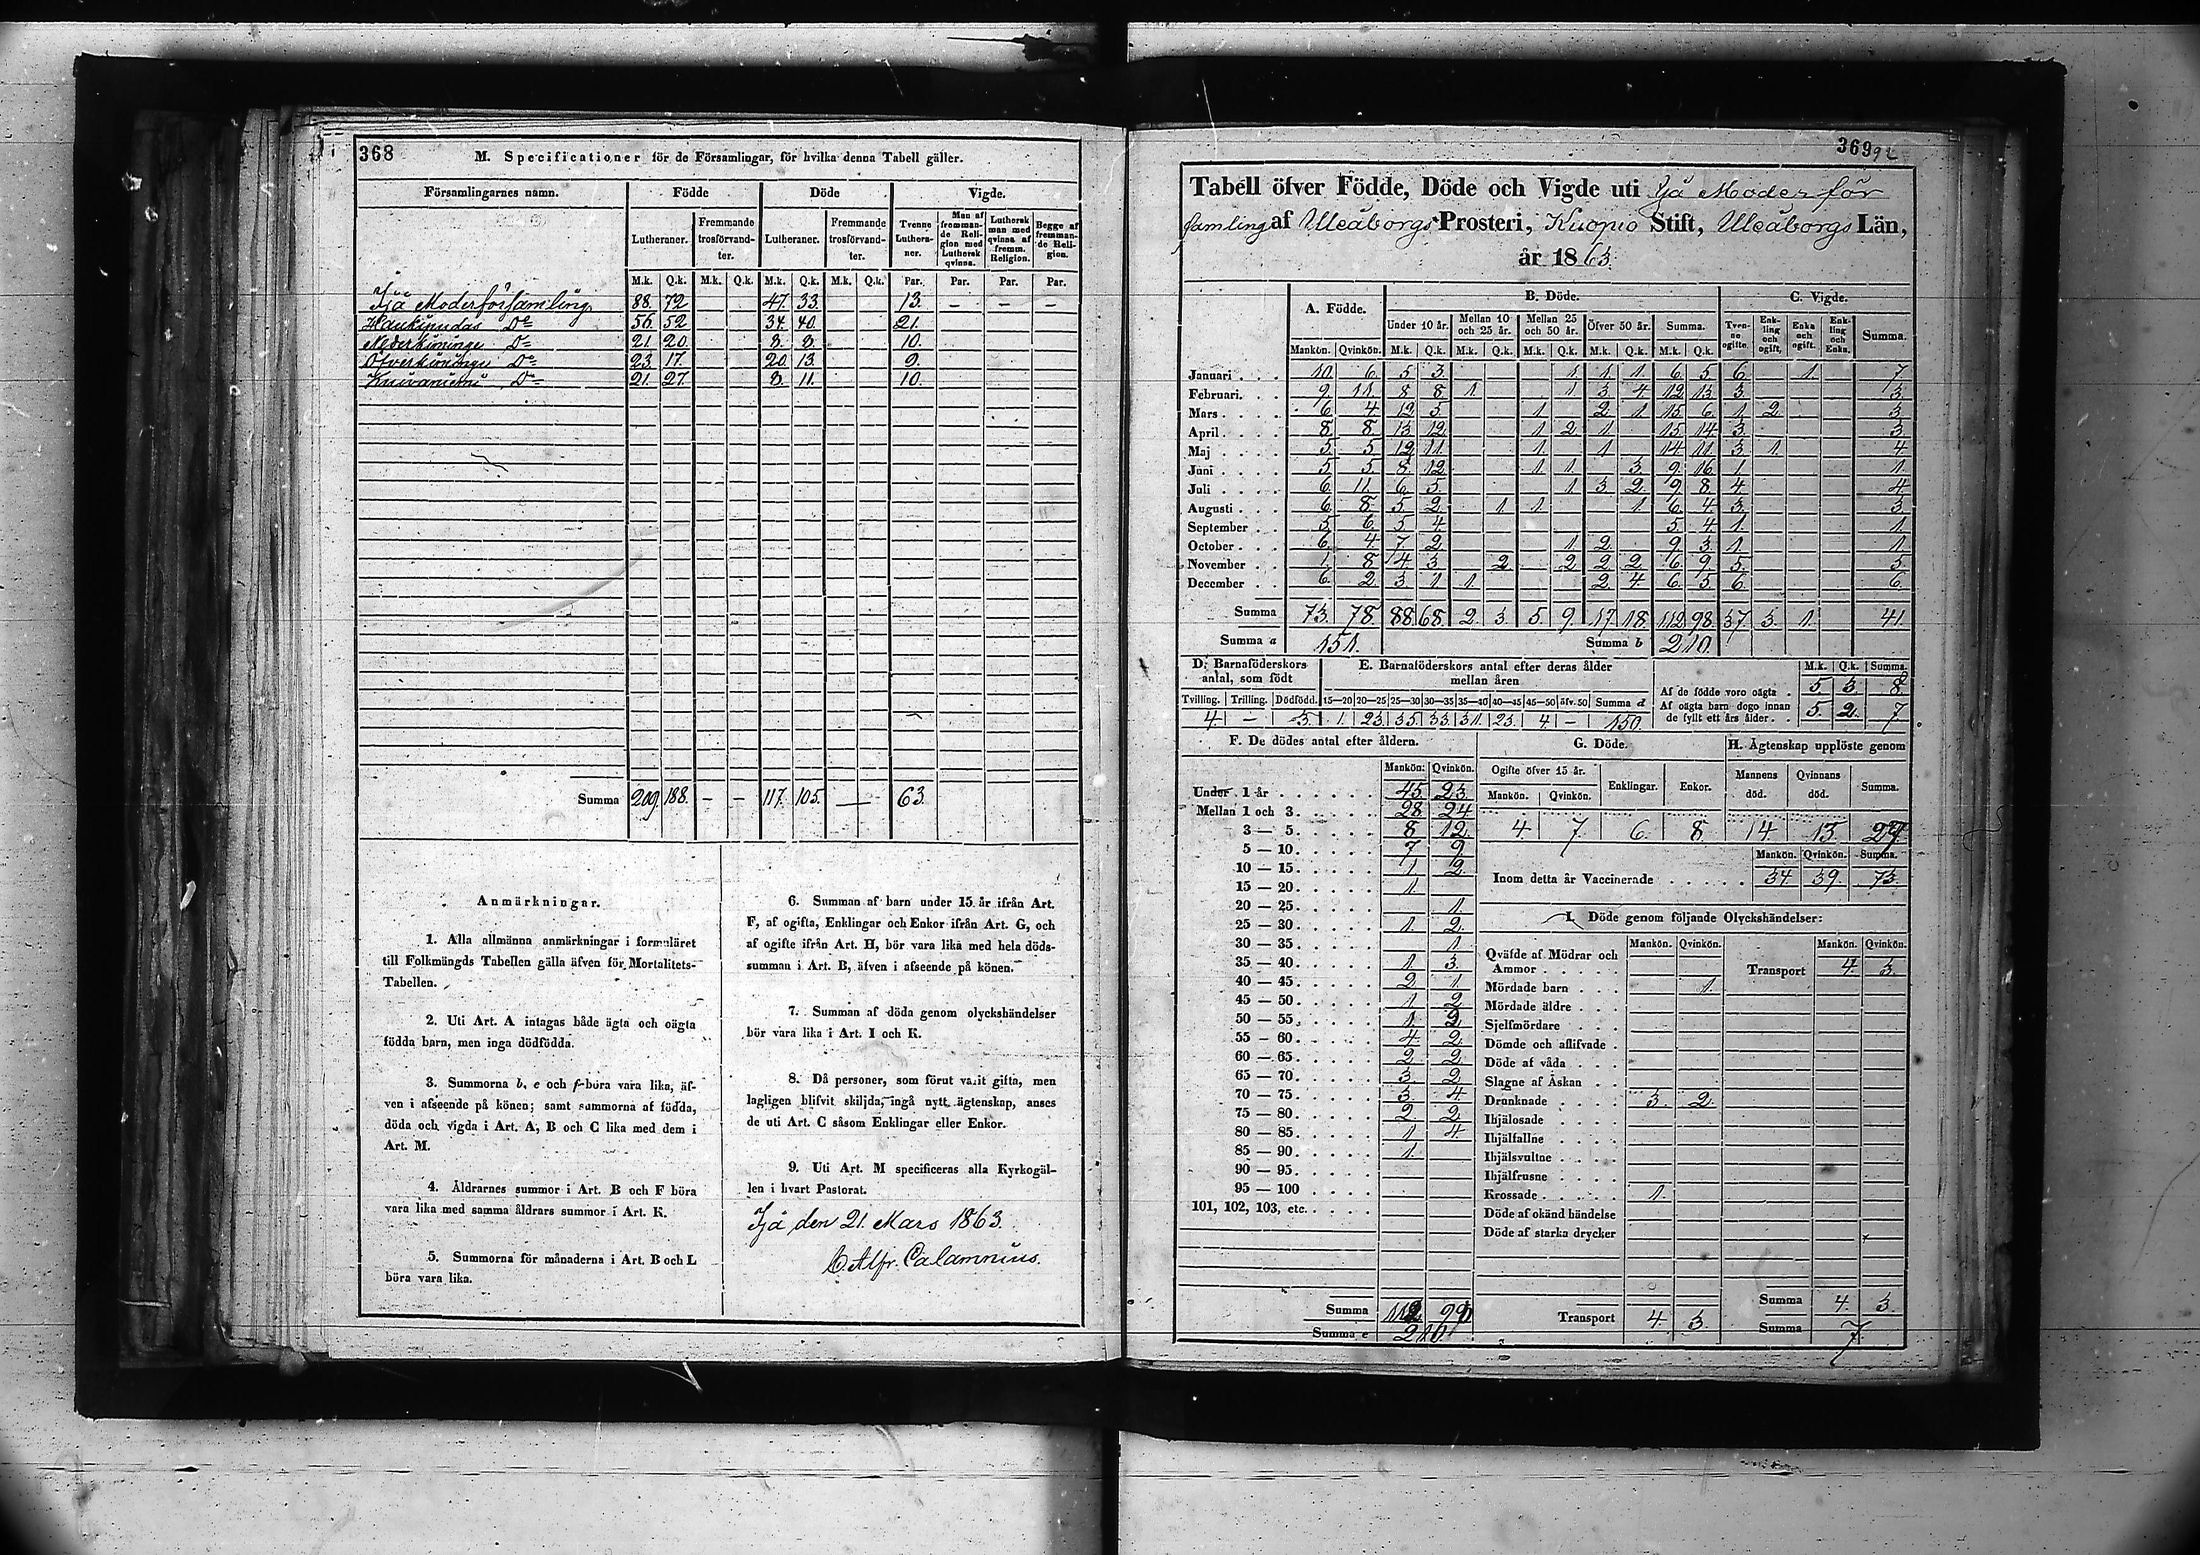 368
M. Specificationer för de Församlingar, för hvilka denna Tabell gäller.
Församlingarnes namn. Födde Döde Vigde.
Lutheraner. Fremmande trosförvandter. Lutheraner. Fremmande trosförvandter. Tvenne Lutheraner. Man af fremmande Religion med Luthersk qvinna. Luthersk man med qvinna af fremm. Religion. Begge af fremmande Religion.
M.k. Q.k. M.k. Q.k. M.k. Q.k. M.k. Q.k. Par. Par. Par. Par.
Ijå Moderförsamling 88. 72 47. 33. 13. — — —
Haukipudas Do 56. 52 34. 40. 21.
Nederkiminge Do 21 20. 8. 8. 10.
Öfverkiminge Do 23. 17. 20. 13. 9.
Kuivaniemi Do 21. 27. 8. 11. 10.
Summa 209. 188. — — 117. 105. — 63.
Anmärkningar.
1. Alla allmänna anmärkningar i formuläret
till Folkmängds Tabellen gälla äfven för Mortalitets-
Tabellen.
2. Uti Art. A intagas både ägta och oägta
födda barn, men inga dödfödda.
3. Summorna b, e och f böra vara lika, äf-
ven i afseende på könen; samt summorna af födda,
döda och vigda i Art. A, B och C lika med dem i
Art. M.
4. Åldrarnes summor i Art. B och F böra
vara lika med samma åldrars summor i Art. K.
5. Summorna för månaderna i Art. B och L
böra vara lika.
6. Summan af barn under 15 år ifrån Art.
F, af ogifta, Enklingar och Enkor ifrån Art. G, och
af ogifte ifrån Art. H, bör vara lika med hela döds-
summan i Art. B, äfven i afseende på könen.
7. Summan af döda genom olyckshändelser
bör vara lika i Art. I och K.
8. Då personer, som förut varit gifta, men
lagligen blifvit skiljda, ingå nytt ägtenskap, anses
de uti Art. C såsom Enklingar eller Enkor.
9. Uti Art. M specificeras alla Kyrkogäl-
len i hvart Pastorat.
Ijå den 21. Mars 1863.
C. Alfr. Calamnius.
369
92
Tabell öfver Födde, Döde och Vigde uti Ijå Moder för
samling af Uleåborgs Prosteri, Kuopio Stift, Uleåborgs Län,
år 1863.
A. Födde. B. Döde. C. Vigde.
Under 10 år. Mellan 10 och 25 år. Mellan 25 och 50 år. Öfver 50 år. Summa. Tvenne ogifte. Enkling och ogift. Enka och ogift. Enkling och Enka. Summa.
Mankön. Qvinkön. M.k. Q.k. M.k. Q.k. M.k. Q.k. M.k. Q.k. M.k. Q.k.
Januari 10. 6. 5 3 1 1 1 6 5 6 1. 7
Februari 9 11. 8 8. 1. 1 3 4 12 13 3. 3.
Mars 6 4 12 5. 1 2 1 15 6. 1 2. 3
April 8 8 13 12. 1 2. 1 15 14 3. 3
Maj 5 5. 12 11. 1 1 14 11. 3 1. 4
Juni 5 5. 8. 12. 1 1. 3 9 16 1. 1.
Juli 6. 11. 6 5. 1 3 2 9 8. 4. 4
Augusti 6 8. 5 2. 1 1 1 6. 4 3. 3.
September 5 6. 5 4. 5. 4 1. 1
October 6. 4 7 2. 1 2. 9 3. 1. 1
November 1. 8 4 3. 2 2 2 2 6 9 5. 5.
December 6. 2 3 1 1. 2 4 6. 5 6. 6.
Summa 73. 78. 88 68. 2 3 5. 9. 17 18. 112 98. 37 3. 1. 41.
Summa a 151. Summa b 210.
D. Barnaföderskors antal, som födt
E. Barnaföderskors antal efter deras ålder mellan åren
M.k. Q.k. Summa.
Tvilling. Trilling. Dödfödd. 15—20 20—25 25—30 30—35 35—40 40—45 45—50 öfv. 50 Summa d
4 — 3. 1. 23. 35. 33. 31. 23. 4. — 150.
Af de födde voro oägta 5. 3. 8.
Af oägta barn dogo innan de fyllt ett års ålder 5. 2. 7
F. De dödes antal efter åldern.
Mankön. Qvinkön.
Under 1 år 45. 23.
Mellan 1 och 3 28 24
3 — 5 8 12.
5 — 10 7 9.
10 — 15 1 2.
15 — 20 1.
20 — 25 1.
25 — 30 1. 2.
30 — 35 1
35 — 40 1 3.
40 — 45 2 1
45 — 50 1 2
50 — 55 1. 2
55 — 60 4. 2
60 — 65 2 2.
65 — 70 3 2
70 — 75 3 4
75 — 80 2 2
80 — 85 1 4.
85 — 90 1.
90 — 95
95 — 100
101, 102, 103, etc.
Summa 112
Summa e 210
G. Döde.
Ogifte öfver 15 år. Enklingar. Enkor.
Mankön. Qvinkön.
4 7 6 8
H. Ägtenskap upplöste genom
Mannens död. Qvinnans död. Summa.
14 13 27.
Mankön. Qvinkön. Summa.
Inom detta år Vaccinerade 34. 39. 73.
I. Döde genom följande Olyckshändelser:
Mankön. Qvinkön. Mankön. Qvinkön.
Qväfde af Mödrar och Ammor
Transport 4. 3.
Mördade barn 1.
Mördade äldre
Sjelfmördare
Dömde och aflifvade
Döde af våda
Slagne af Åskan
Drunknade 3. 2.
Ihjälosade
Ihjälfallne
Ihjälsvultne
Ihjälfrusne
Krossade 1.
Döde af okänd händelse
Döde af starka drycker
Summa 4. 3.
Transport 4. 3. Summa 7.